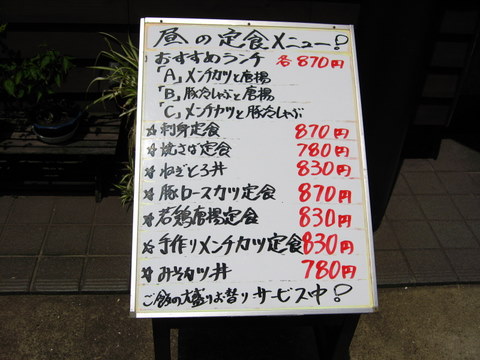 昼の定食メニュー!
おすすめランチ 各870円
「A」メンチカツと唐揚
「B」豚冷しゃぶと唐揚
「C」メンチカツと豚冷しゃぶ
☆刺身定食 870円
☆焼さば定食 780円
☆ねぎとろ丼 830円
☆豚ロースカツ定食 870円
☆若鶏唐揚定食 830円
☆手作りメンチカツ定食 830円
☆みそカツ丼 780円
ご飯の大盛りお替り サービス中!